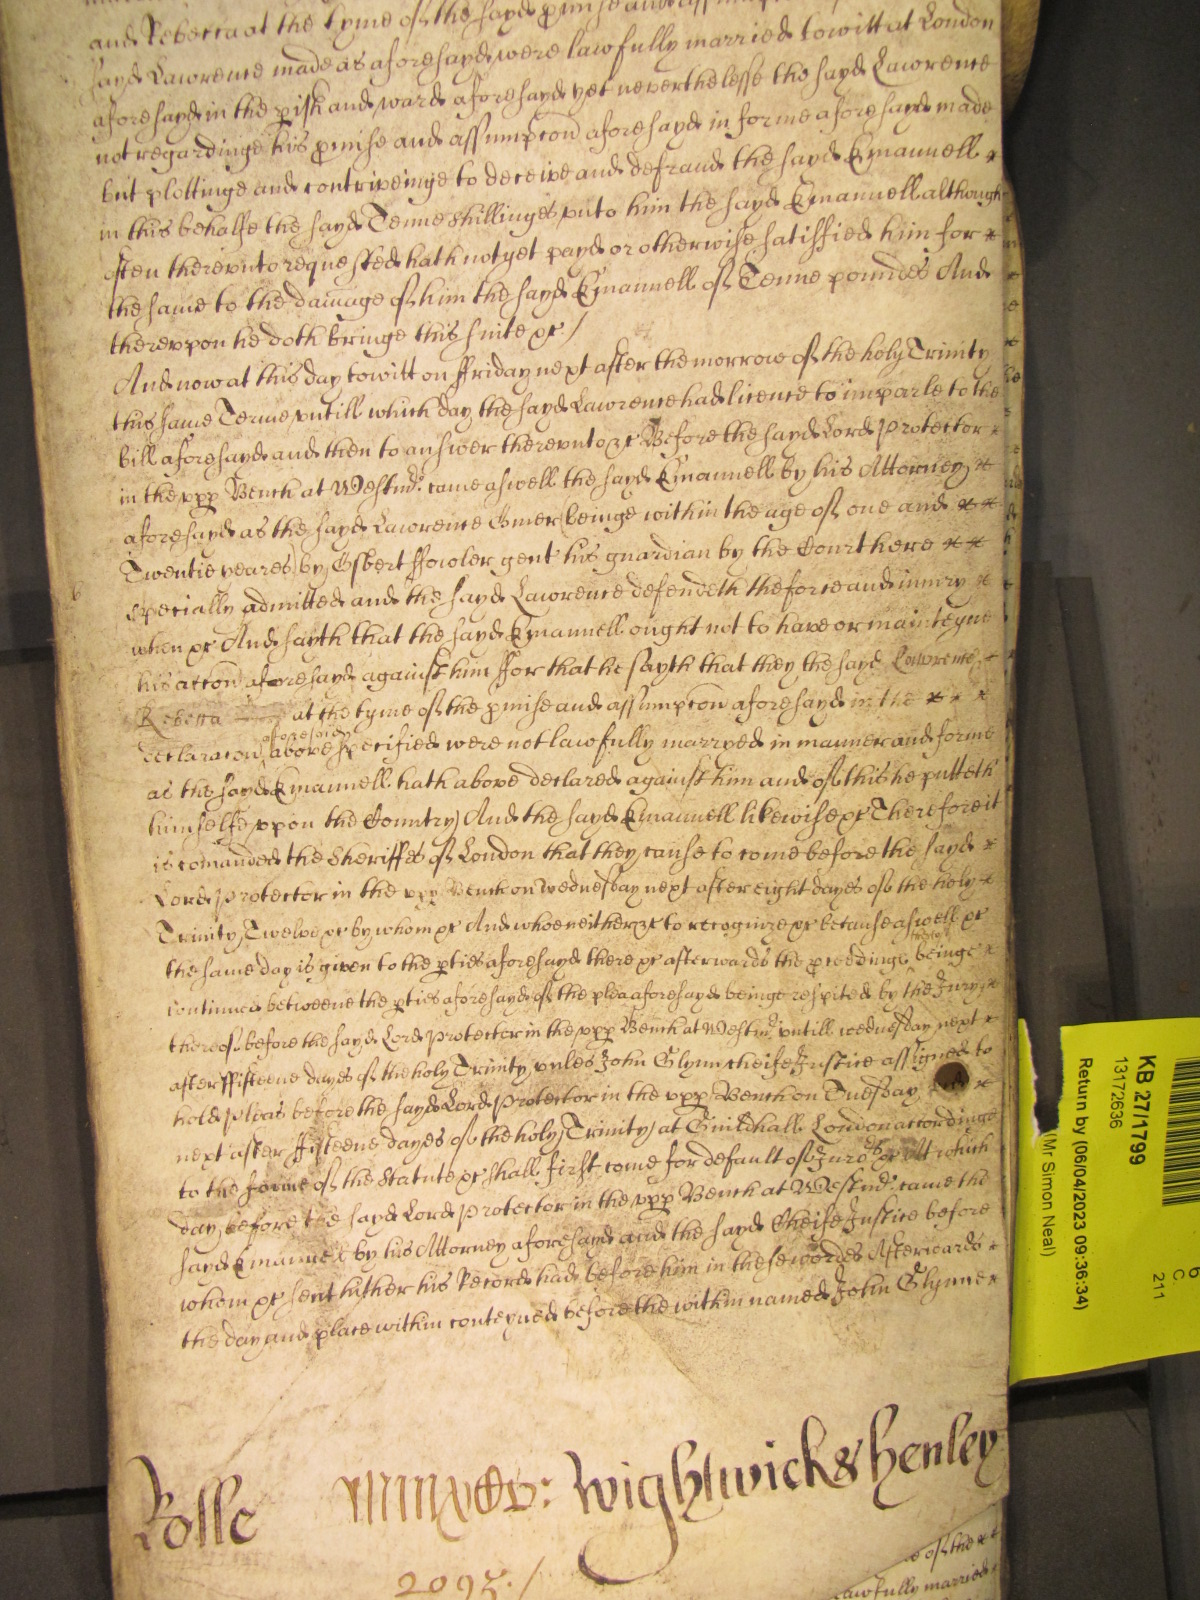 and Rebecca at the tyme of the sayd pmise and
sayd Lawrence made as aforesayd were lawfully married towitt at London
aforesayd in the pish and ward aforesayd yet neverthelesse the sayd Lawrence
not regardinge his pmise and assumpcon aforesayd in forme aforesayd made
but plottinge and contriveinge to deceive and defraud the sayd Emanuell
in this behalfe the sayd Tenne shillinges unto him the sayd Emanuell although
often thereunto requested hath not yet payd or otherwise satisfied him for
the same to the damage of him the sayd Emanuell of Tenne poundes And
thereuppon he doth bringe this suite &c /
And now at this day towitt on ffriday next after the morrow of the holy Trinity
this same Terme untill which day the sayd Lawrence had licence to imparle to the
bill aforesayd and then to answer thereunto &c Before the sayd Lord Protector
in the upp Bench at Westmr. came aswell the sayd Emanuell by his Attorney
aforesayd as the sayd Lawrence beinge within the age of one and
Twentie yeares by Osbert ffowler gent his guardian by the Court here
specially admitted and the sayd Lawrence defendeth the force and iniury
when &c And sayth that the sayd Emanuell ought not to have or mainteyne
his accon aforesayd against him ffor that he sayth that they the sayd Lawrence
Rebecca at the tyme of the pmise and assumpcon aforesayd in the
aforesayd
declaracon above specified were not lawfully marryed in manner and forme
as the sayd Emanuell hath above declared against him and of this he putteth
himselfe uppon the Country And the sayd Emanuell likewise &c Therefore it
is comanded the Sheriffes of London that they cause to come before the sayd
Lord Protector in the upp Bench on Wednesday next after eight dayes of the holy
Trinity Twelve &c by whom &c And whoe neither &c to recognize &c because aswell &c
the same day is given to the pties aforesayd there &c afterwards the pceedings beinge
continued betweene the pties aforesayd of the plea aforesayd beinge respited by the Jury
thereof before the sayd Lord Protector in the upp Bench at Westmr. untill wednesday next
after ffifteene dayes of the holy Trinity unles John Glynn cheife Justice assigned to
hold pleas before the sayd Lord Protector in the upp Bench on Tuesday
next after ffifteene dayes of the holy Trinity at Guildhall London accordinge
to the forme of the Statute &c shall first come for default of Jurors &c Att which
day before the sayd Lord Protector in the upp Bench at Westmr. came the
sayd Emanuel by his Attorney aforesayd and the sayd Cheife Justice before
whom &c sent hither his Record had before him in these wordes Afterwards
the day and place within conteyned before the within named John Glynne
Rolle Wightwick & Henley
2095. /
e of the
lawfully married
KB 27/1799
13172636
Return by (06/04/2023 09:36:34)
(Mr Simon Neal)
6
C
211